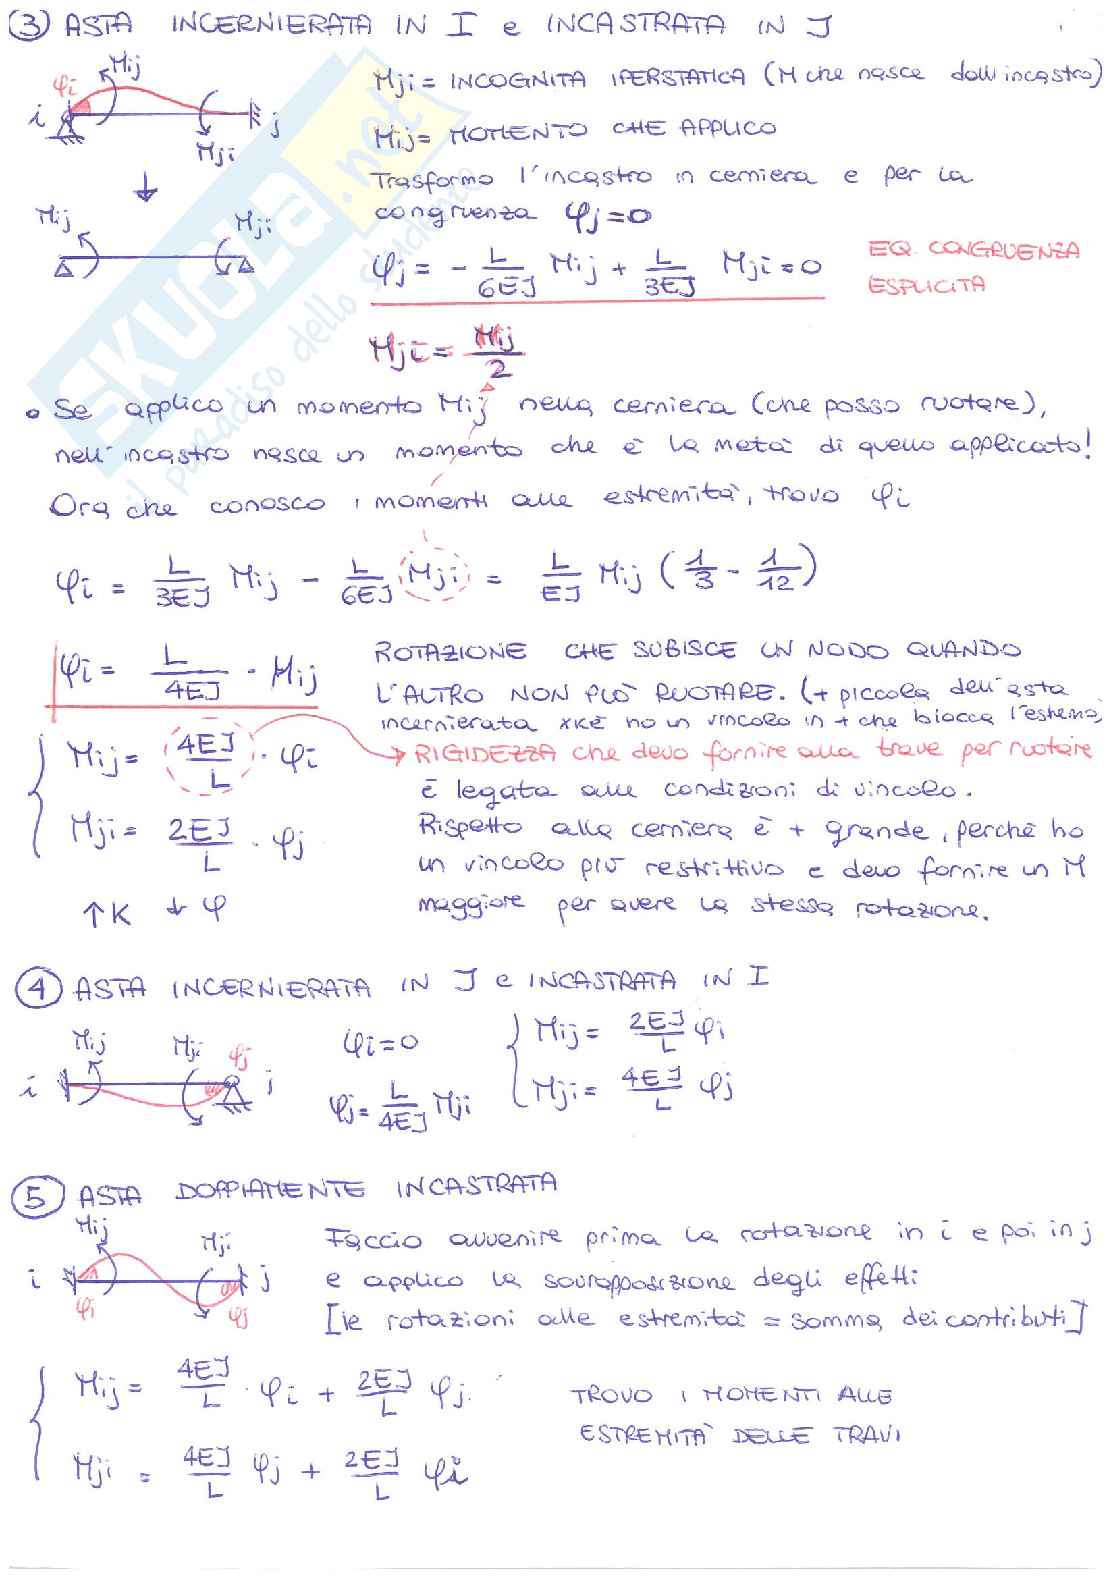 (3) ASTA INCERNIERATA IN I e INCASTRATA IN J
φi Mij
i Mji j
Mji = INCOGNITA IPERSTATICA (M che nasce dall'incastro)
Mij = MOMENTO CHE APPLICO
Trasformo l'incastro in cerniera e per la
congruenza φj=0
Mij Mji
φj = - L/6EJ Mij + L/3EJ Mji = 0
EQ. CONGRUENZA
ESPLICITA
Mji = Mij/2
• Se applico un momento Mij nella cerniera (che posso ruotare),
nell'incastro nasce un momento che è la metà di quello applicato!
Ora che conosco i momenti alle estremità, trovo φi
φi = L/3EJ Mij - L/6EJ Mji = L/EJ Mij (1/3 - 1/12)
φi = L/4EJ · Mij
ROTAZIONE CHE SUBISCE UN NODO QUANDO
L'ALTRO NON PUÒ RUOTARE. (+ piccola dell'asta
incernierata xkè ho un vincolo in + che blocca l'estremo)
Mij = 4EJ/L · φi
→ RIGIDEZZA che devo fornire alla trave per ruotare
è legata alle condizioni di vincolo.
Mji = 2EJ/L · φj
Rispetto alla cerniera è + grande, perché ho
un vincolo più restrittivo e devo fornire un M
maggiore per avere la stessa rotazione.
↑K ↓φ
(4) ASTA INCERNIERATA IN J e INCASTRATA IN I
Mij Mji φj
i j
φi=0
φj = L/4EJ Mji
Mij = 2EJ/L φi
Mji = 4EJ/L φj
(5) ASTA DOPPIAMENTE INCASTRATA
Mij Mji
i j
φi φj
Faccio avvenire prima la rotazione in i e poi in j
e applico la sovrapposizione degli effetti
[le rotazioni alle estremità = somma dei contributi]
Mij = 4EJ/L · φi + 2EJ/L φj
Mji = 4EJ/L φj + 2EJ/L φi
TROVO I MOMENTI ALLE
ESTREMITÀ DELLE TRAVI
SKUOLA.net
il paradiso dello studente